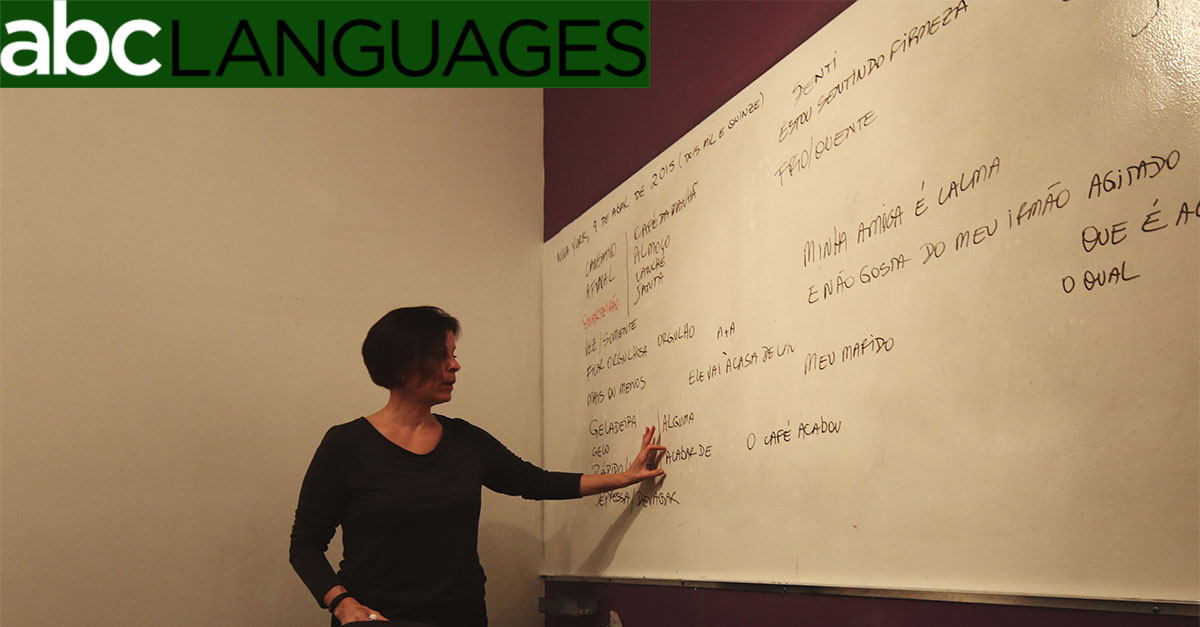 abc LANGUAGES
NOVA YORK, 7 DE ABRIL DE 2015 (DOIS MIL E QUINZE)
CANSADO | CAFÉ DA MANHÃ
AFINAL | ALMOÇO
LANCHE
JANTA
VEZ / SOMENTE
FICAR ORGULHOSA ORGULHO A+A
MAIS OU MENOS ELE VAI À CASA DE
GELADEIRA | ALGUMA
GELO
RÁPIDO / ACABAR DE
DEPRESSA / DEVAGAR
SENTI
ESTOU SENTINDO FIRMEZA
FRIO/QUENTE
MINHA AMIGA É CALMA
E NÃO GOSTA DO MEU IRMÃO AGITADO
QUE É
O QUAL
MEU MARIDO
O CAFÉ ACABOU